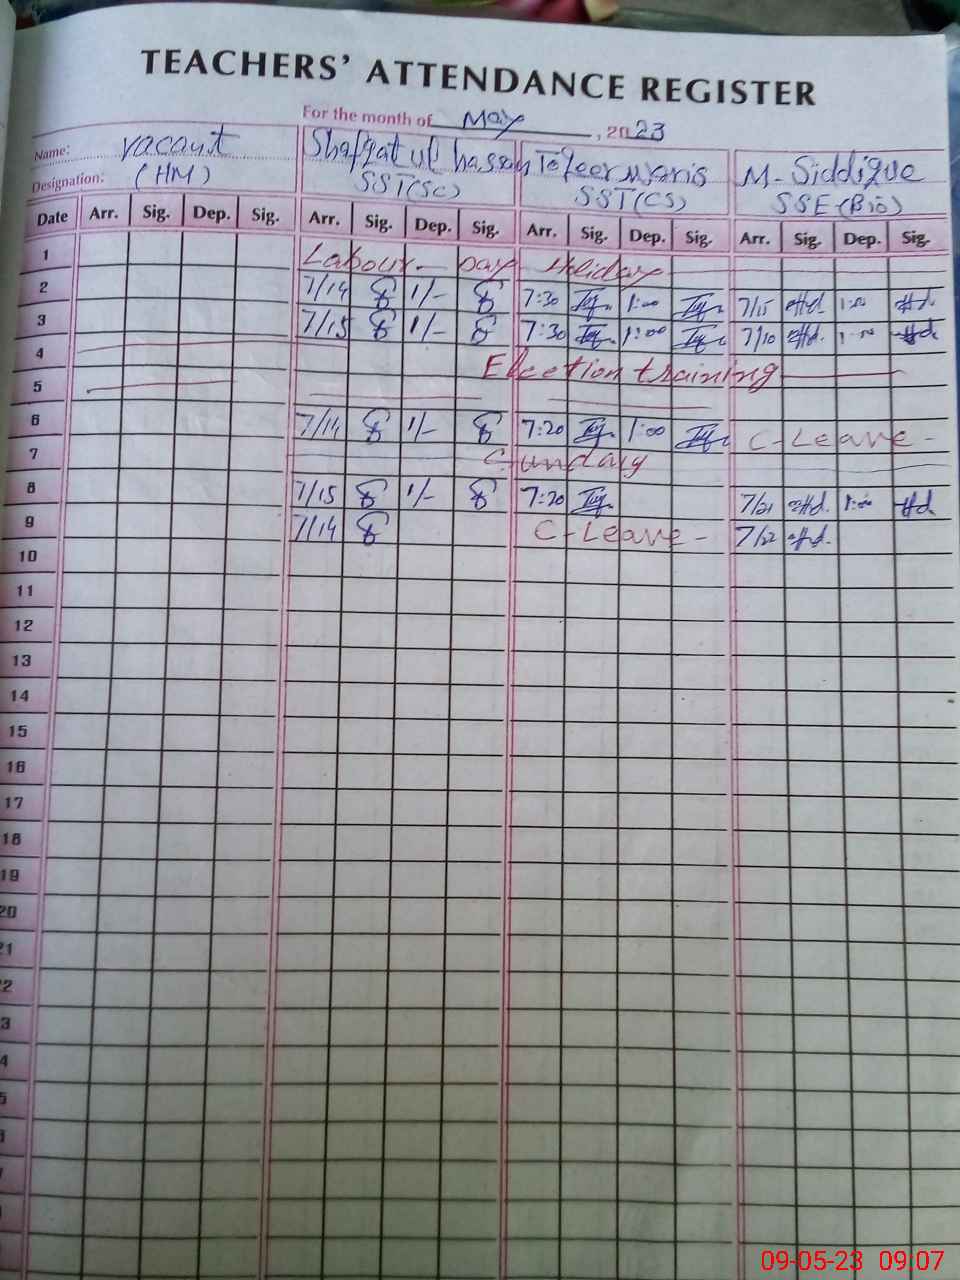 TEACHERS' ATTENDANCE REGISTER
For the month of May, 2023
Name: vacant Shafqat ul hassan M. Siddique
Designation: (HM) SST(Sc) SST(CS) SSE(Bio)
Date Arr. Sig. Dep. Sig. Arr. Sig. Dep. Sig. Arr. Sig. Dep. Sig. Arr. Sig. Dep. Sig.
1 Labour Day Holiday
2 7/14 1/- 7:30 1:00 7/15 1:00
3 7/15 1/- 7:30 1:00 7/10 1:00
4 Election training
5
6 7/14 1/- 7:20 1:00 C-Leave-
7 Sunday
8 7/15 1/- 7:20 7/21 1:00
9 7/14 C-Leave- 7/22
10
11
12
13
14
15
16
17
18
19
20
21
2
3
4
5
09-05-23 09:07